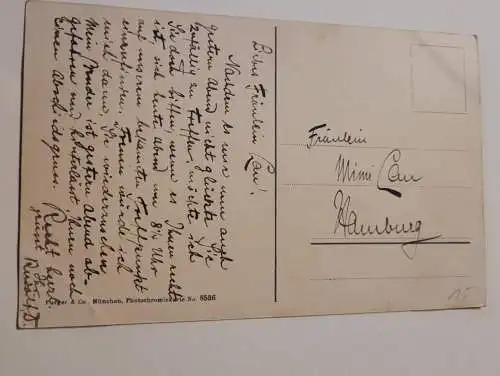 Liebes Fräulein Lau!
Nachdem es mir nun auch
gestern Abend nicht glückte Sie
zufällig zu treffen, möchte ich
Sie doch bitten, wenn es Ihnen recht
ist, sich heute Abend um 8¼ Uhr
auf unserem bekannten Treffpunkt
einzufinden. Freuen würde ich
mich dann, Sie wiedersehen
Mein Bruder ist gestern Abend ab-
gefahren und hinterlässt Ihnen noch
Einen Abschiedsgruss. Recht herzl.
grüsst Sie
Rudolf D.
Fräulein
Mimi Lau
Hamburg
& Co., München, Photochromiekarte No. 8586
15